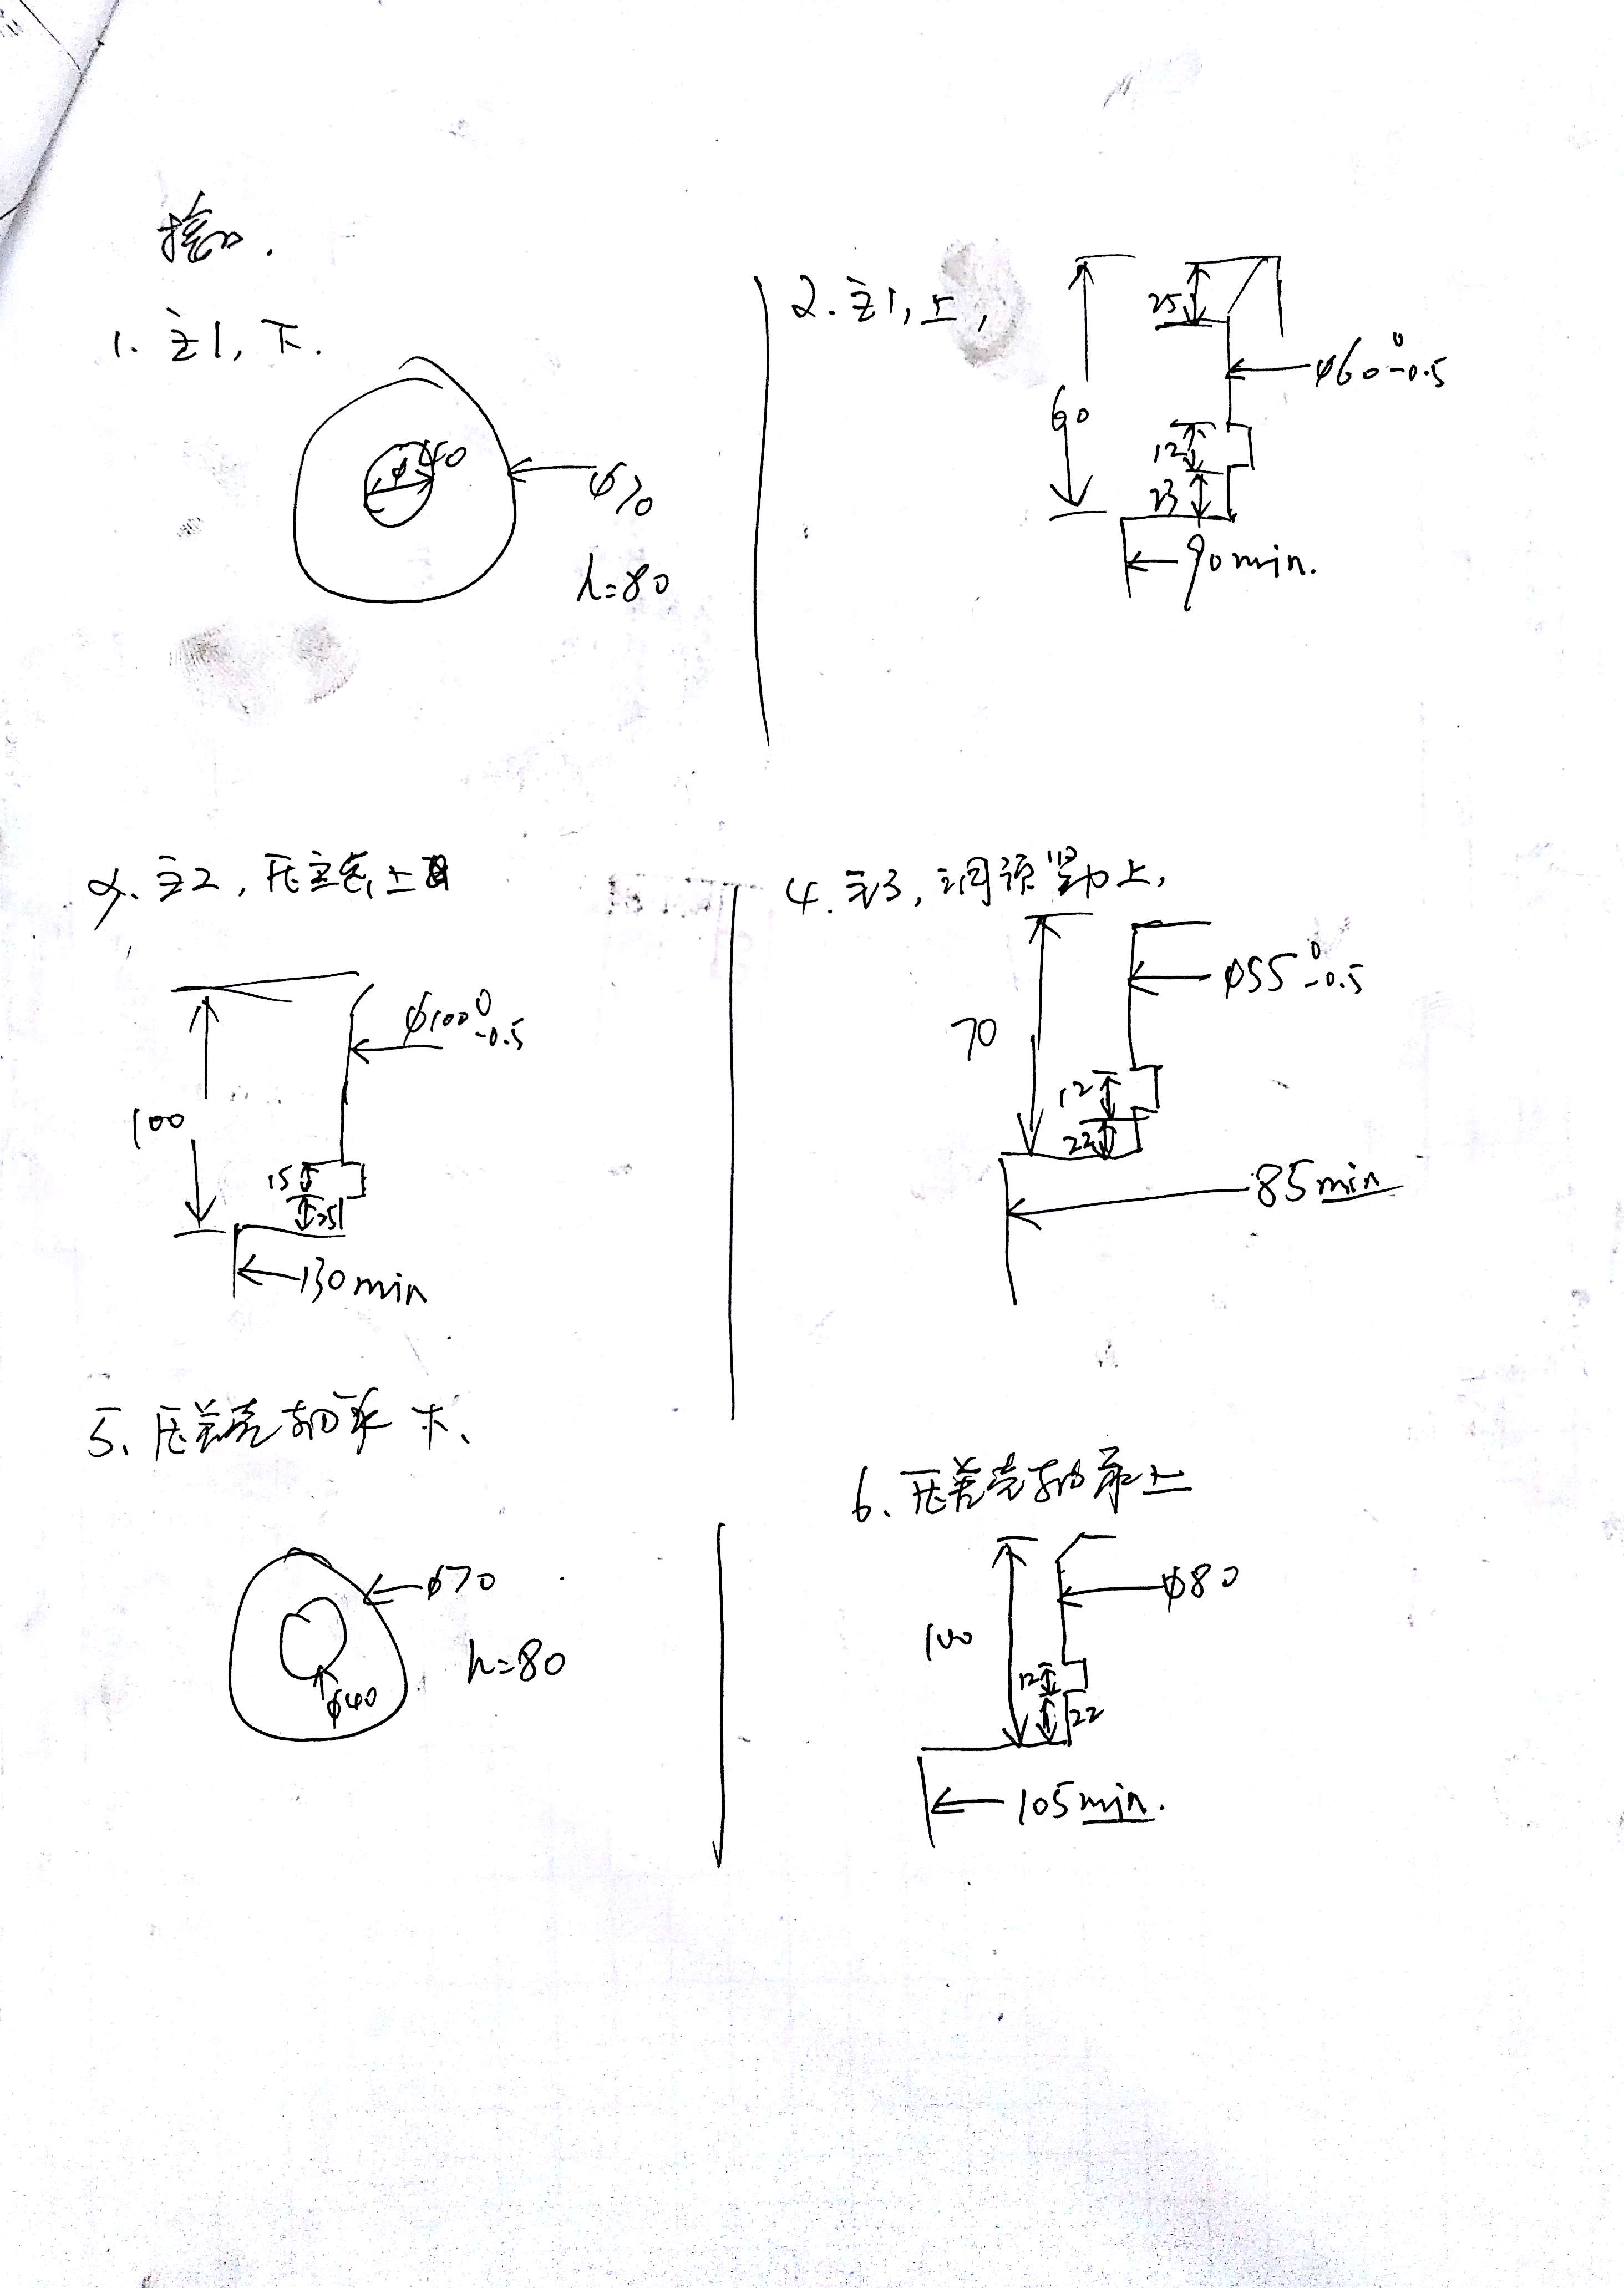 1. 主1, 下.
φ40
φ70
h=80
2. 主1, 上,
25
φ60 0 -0.5
60
12
23
90min.
主2, 压主壳上
φ100 0 -0.5
100
15
25
130min
4. 主3, 调预紧力上,
φ55 0 -0.5
70
12
22
85min
5、压差壳轴承下、
φ70
h=80
φ40
6、压差壳轴承上
φ80
100
12
22
105min.